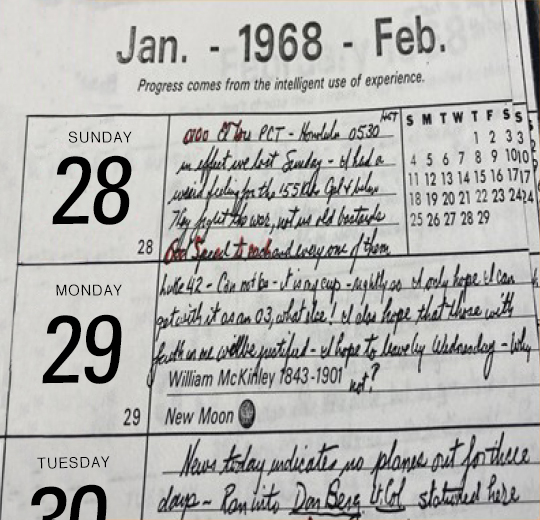 Jan. - 1968 - Feb.
Progress comes from the intelligent use of experience.
SUNDAY
28
28
PCT - Honolulu 0530 HST
in effect we lost Sunday - I had a
weird feeling for the 155 Cpl & below
They fight the war, not us old bastards
God Speed to each and every one of them
S M T W T F S S
1 2 3 3
4 5 6 7 8 9 10 10
11 12 13 14 15 16 17 17
18 19 20 21 22 23 24 24
25 26 27 28 29
MONDAY
29
29
Luke 42 - Can not be - it is my cup - rightly so I only hope I can
get with it as an 03, what else! I also hope that those with
faith in me will be justified - I hope to leave by Wednesday - Why
not?
William McKinley 1843-1901
New Moon
TUESDAY
30
News today indicates no planes out for three
days - Ran into Don Berg Lt Col stationed here